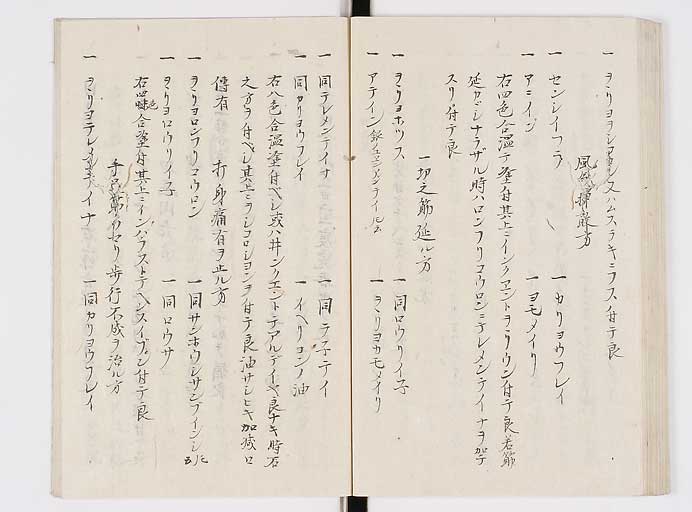 一 ヲヽリヨヲシマルシ又ハムスラキニフス付テ良
風気掃蔽方
一 センレイフラ 一 カリヨウフレイ
一 アニイシ 一 ヨモメイリ
右四色合温テ塗付其上ニインクエントヲヽリウン付テ良若筋
延カ子シナラザル時ハロンフリコウロンニテレメンテイナヲ加テ
スリ付テ良
一切之筋延ル方
一 ヲヽリヨホツス 一 同ロウリイ子
一 アテイン 一 ヲヽリヨカモメイリ
一 同テレメンテイナ 一 同ラ子テイ
一 同カリヨウフレイ 一 イヘリコンノ油
右八色合温塗付ヘシ或ハ井ンクエントテアルテイヘ良ナキ時右
之方ヲ付ヘシ其上ニヲシコロシヨンヲ付テ良油サシヒキ加减口
傳有 打身痛有ヲ止ル方
一 ヲヽリヨロンフリコウロン 一 同サンホウシサンデイシ
一 ヲヽリヨロウリイ子 一 同ロウサ
右四色合塗付其上ニインハラストテヘンスイフン付テ良
手足萬カセリ歩行不成ヲ治ル方
一 ヲヽリヨテレメンテイナ 一 同カリヨウフレイ